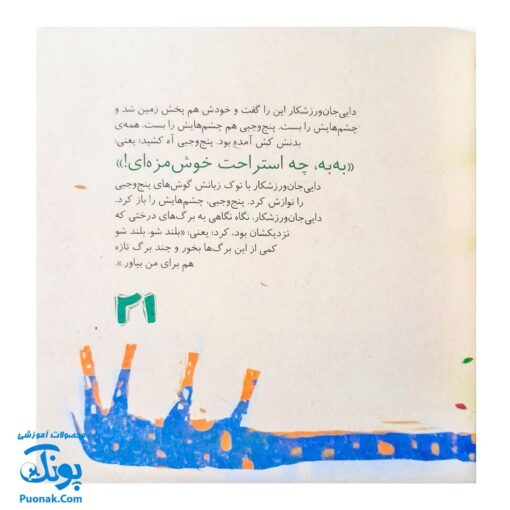 دایی‌جان‌ورزشکار این را گفت و خودش هم پخش زمین شد و
چشم‌هایش را بست. پنج‌وجبی هم چشم‌هایش را بست. همه‌ی
بدنش کش آمده بود. پنج‌وجبی آه کشید؛ یعنی:
«به‌به، چه استراحت خوش‌مزه‌ای!»
دایی‌جان‌ورزشکار با نوک زبانش گوش‌های پنج‌وجبی
را نوازش کرد. پنج‌وجبی، چشم‌هایش را باز کرد.
دایی‌جان‌ورزشکار، نگاه نگاهی به برگ‌های درختی که
نزدیکشان بود، کرد؛ یعنی: «بلند شو، بلند شو
کمی از این برگ‌ها بخور و چند برگ تازه
هم برای من بیاور.».
۲۱
محصولات آموزشی
پونک
Puonak.Com